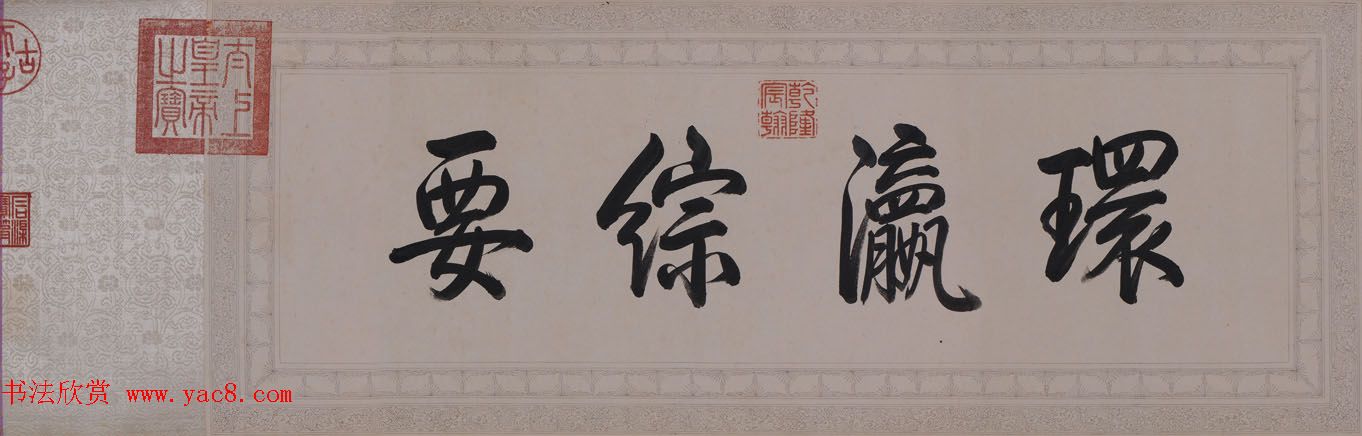 環瀛綜要
乾隆
宸翰
太上
皇帝
之寶
书法欣赏 www.yac8.com